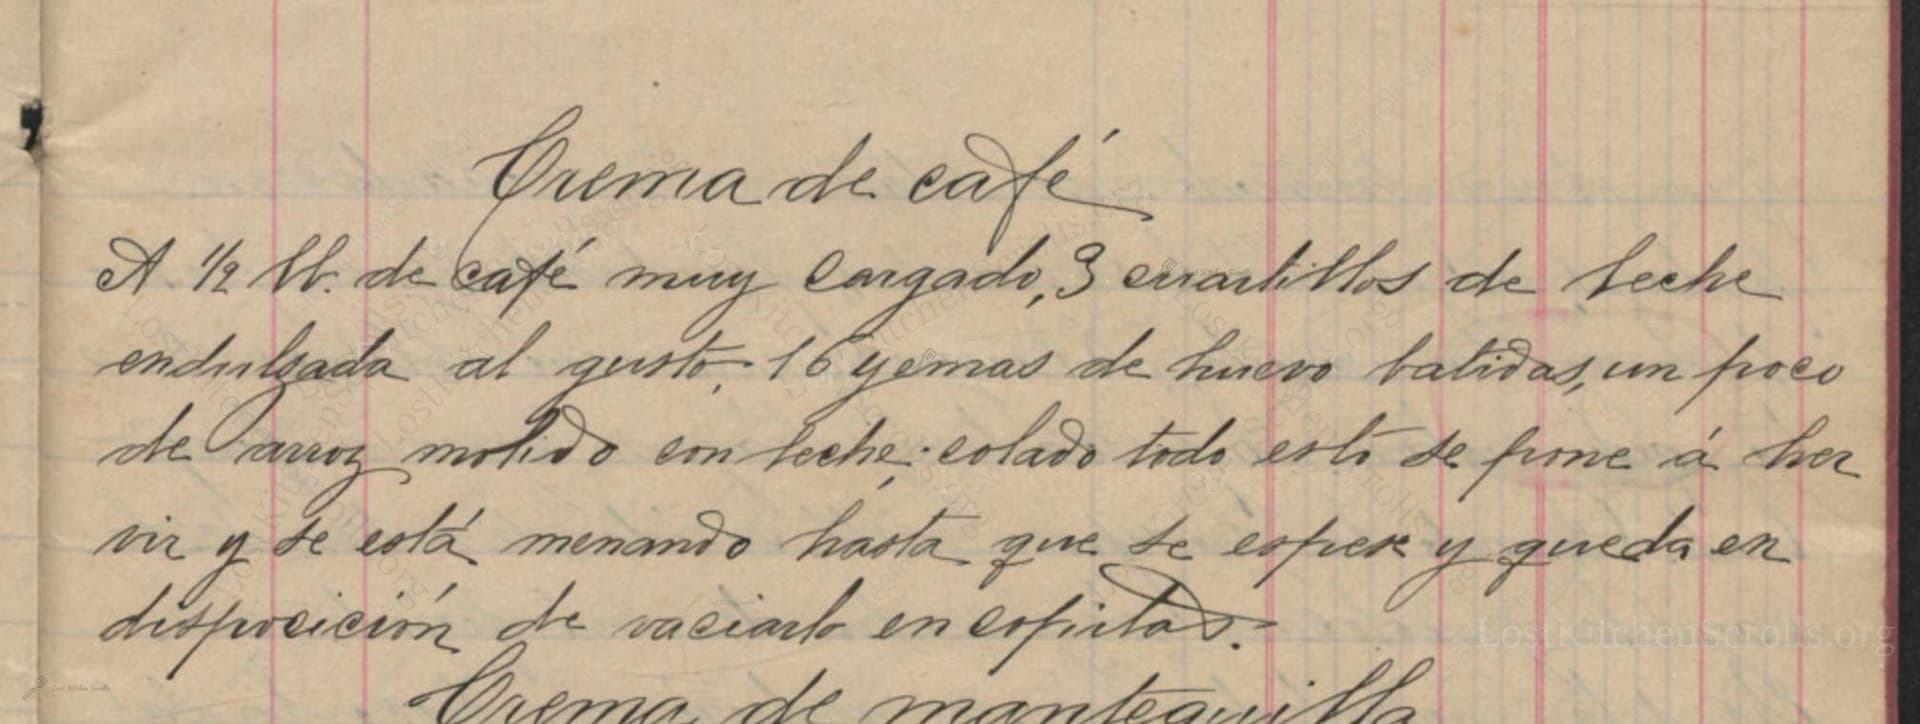 Crema de café
A 1/2 lb. de café muy cargado, 3 cuartillos de leche
endulzada al gusto, 16 yemas de huevo batidas, un poco
de arroz molido con leche; colado todo esto se pone á her
vir y se está menando hasta que se espese y queda en
disposición de vaciarlo en copitas.
Crema de mantequilla
LostKitchenScrolls.org